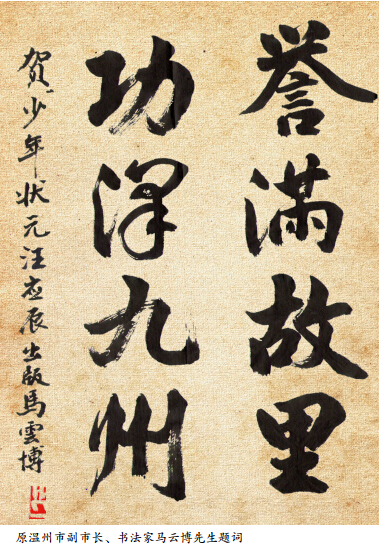 誉满故里
功泽九州
贺《少年状元汪应辰》出版馬雲博
原温州市副市长、书法家马云博先生题词